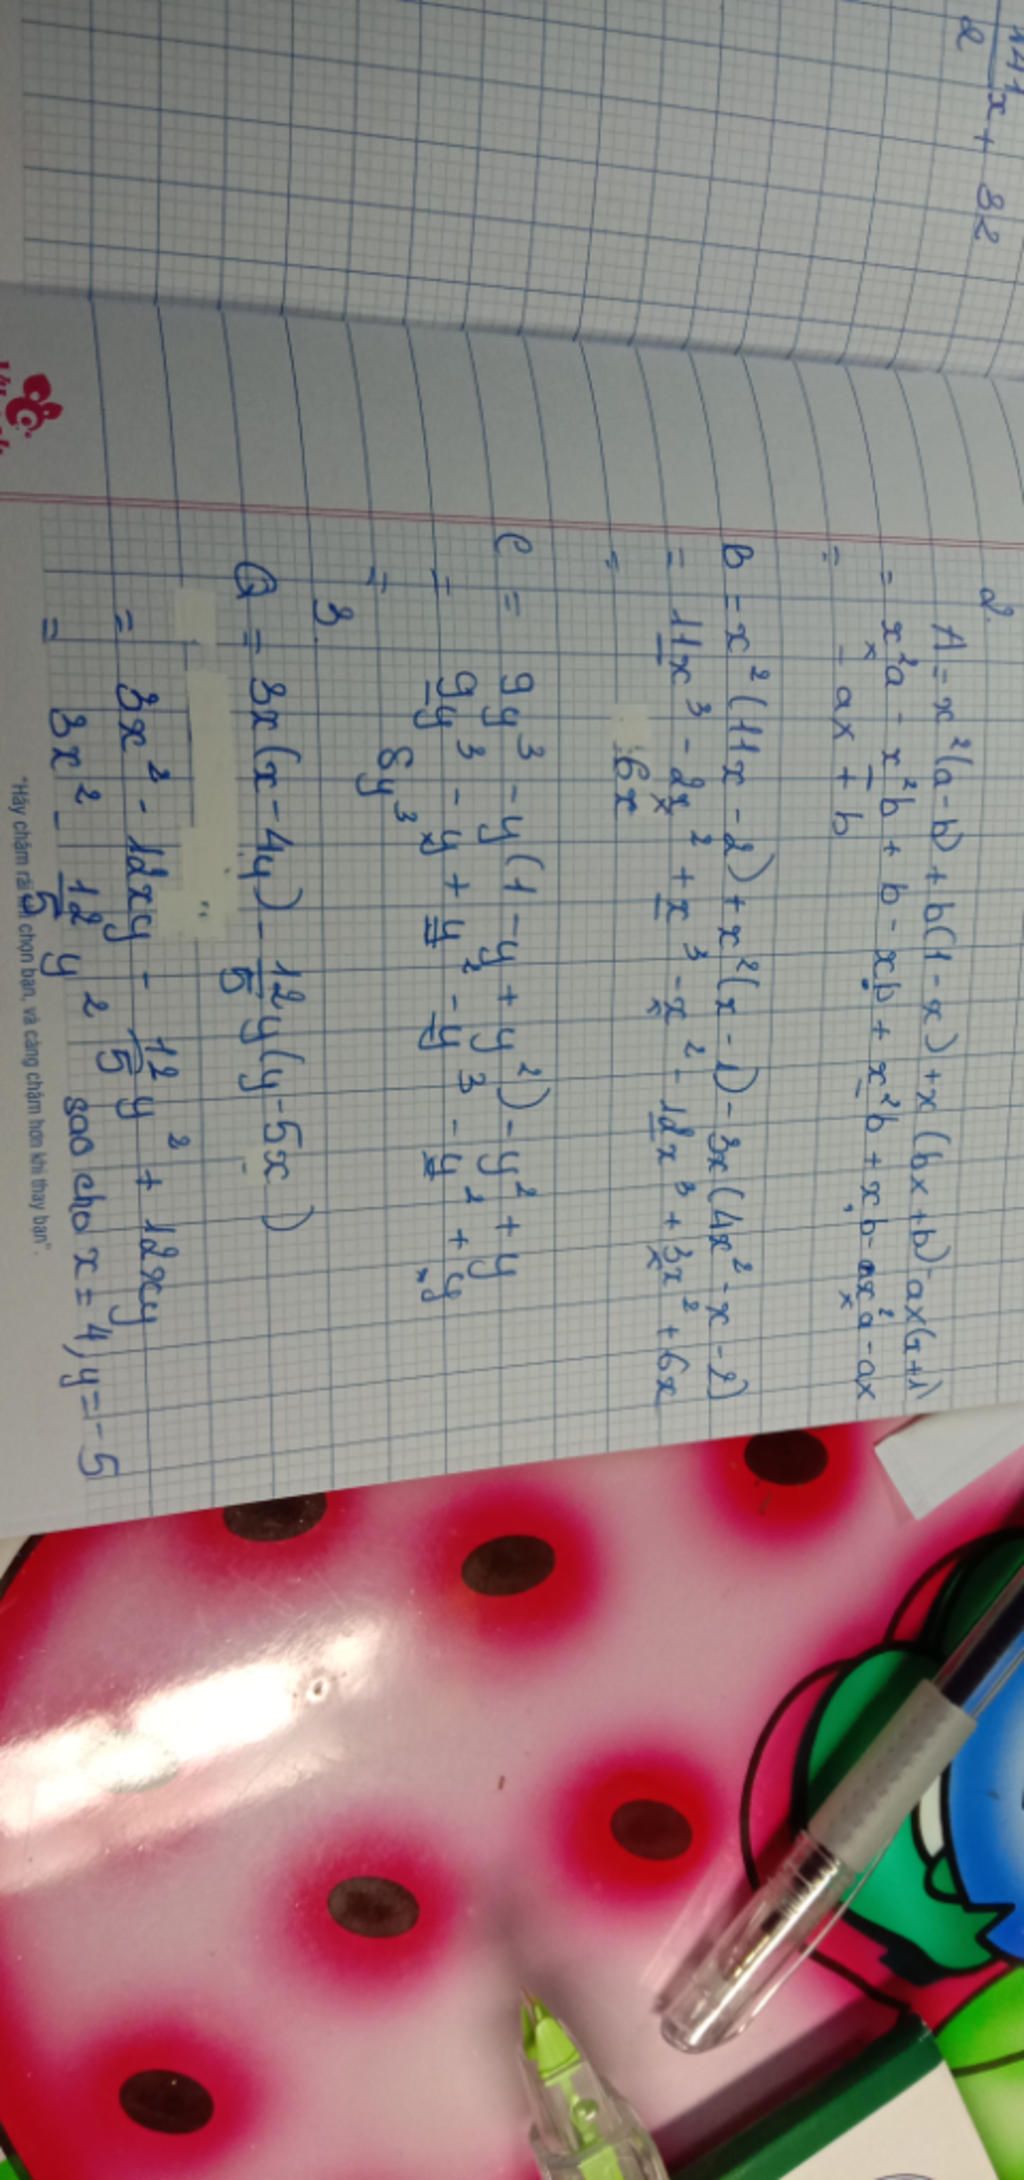 441/2 x + 82
2.
A = x²(a-b) + b(1-x) + x(bx+b) - ax(x+1)
= x²a - x²b + b - xb + x²b + xb - x²a - ax
= - ax + b
B = x²(11x - 2) + x²(x - 1) - 3x(4x² - x - 2)
= 11x³ - 2x² + x³ - x² - 12x³ + 3x² + 6x
= 6x
C = 9y³ - y(1 - y + y²) - y² + y
= 9y³ - y + y² - y³ - y² + y
= 8y³
3
Q = 3x(x - 4y) - 12/5 y(y - 5x)
= 3x² - 12xy - 12/5 y² + 12xy
= 3x² - 12/5 y² sao cho x = 4, y = -5
"Hãy chậm rãi khi chọn bạn, và càng chậm hơn khi thay bạn".